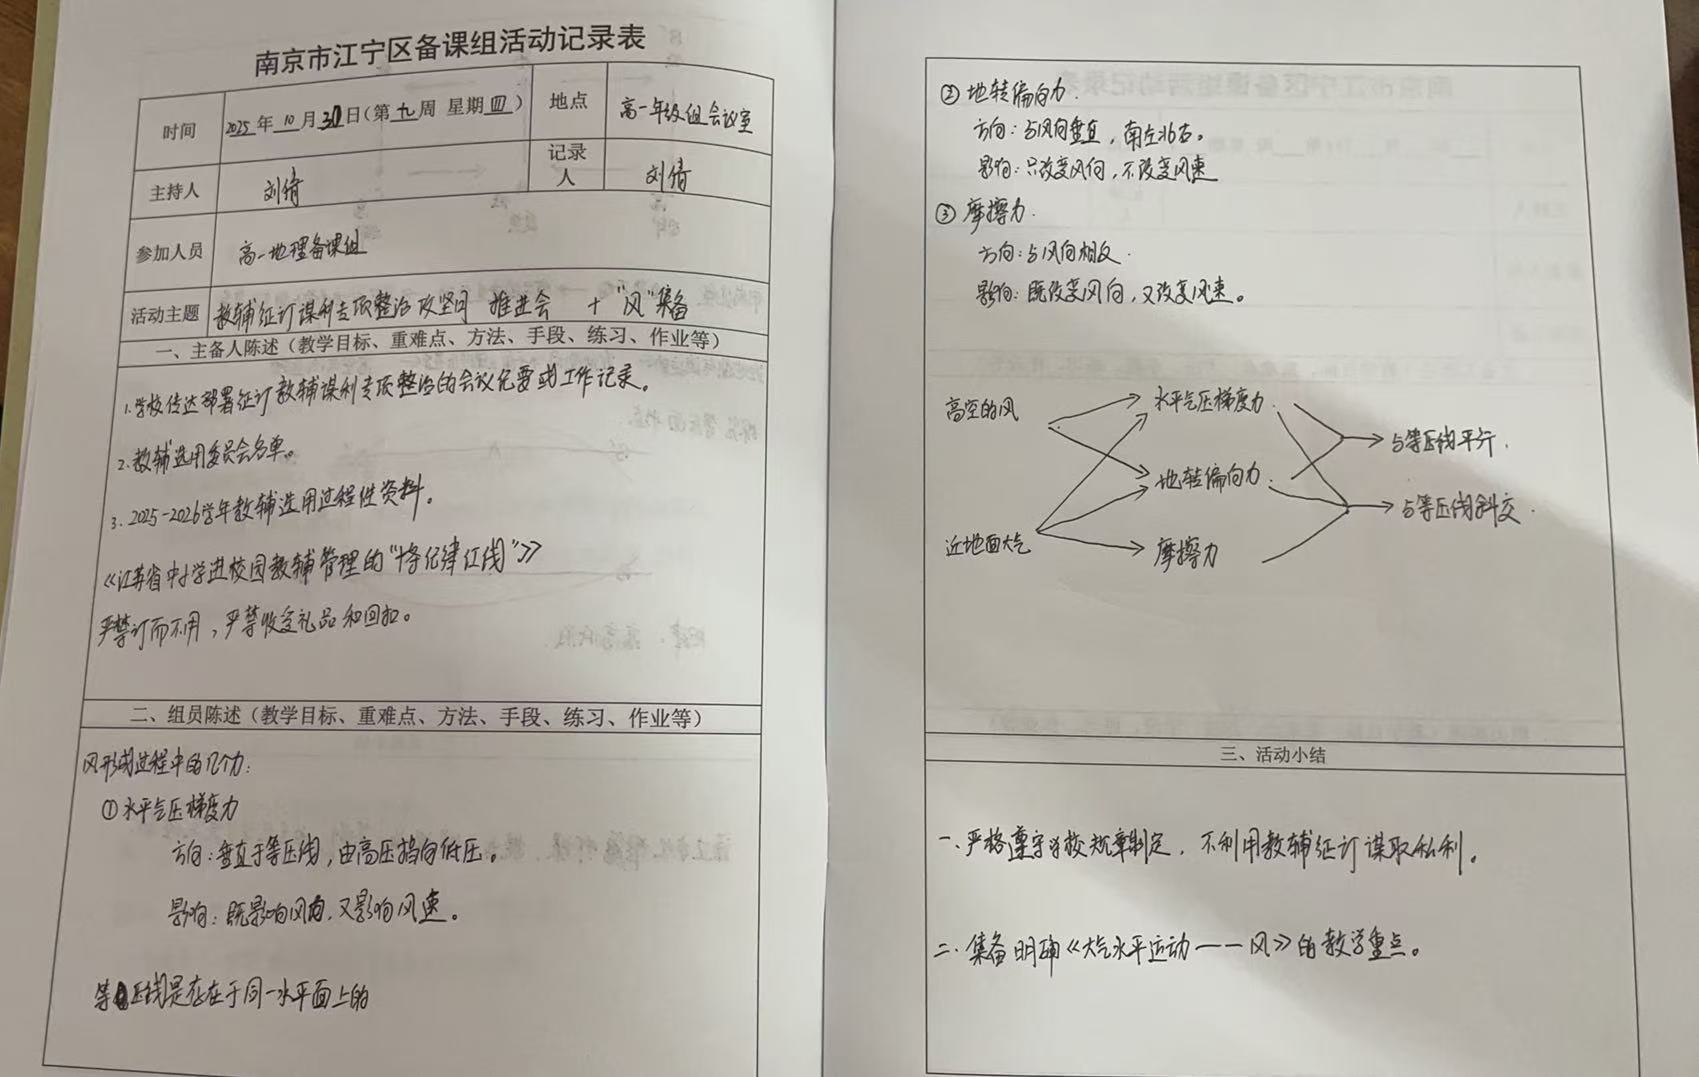 南京市江宁区备课组活动记录表
时间 2025年10月30日(第九周 星期四) 地点 高一年级组会议室
主持人 刘倩 记录人 刘倩
参加人员 高一地理备课组
活动主题 教辅征订谋利专项整治攻坚 推进会 + "风"集备
一、主备人陈述(教学目标、重难点、方法、手段、练习、作业等)
1.学校传达部署征订教辅谋利专项整治的会议纪要或工作记录。
2.教辅选用委员会名单。
3.2025-2026学年教辅选用过程性资料。
《江苏省中小学进校园教辅管理的"十条纪律红线"》
严禁订而不用,严禁收受礼品和回扣。
二、组员陈述(教学目标、重难点、方法、手段、练习、作业等)
风形成过程中的几个力:
①水平气压梯度力
方向:垂直于等压线,由高压指向低压。
影响:既影响风向,又影响风速。
等压线是存在于同一水平面上的
②地转偏向力.
方向:与风向垂直,南左北右。
影响:只改变风向,不改变风速
③摩擦力.
方向:与风向相反.
影响:既改变风向,又改变风速。
高空的风
水平气压梯度力.
与等压线平行.
地转偏向力.
与等压线斜交.
近地面大气
摩擦力
三、活动小结
一.严格遵守学校规章制定,不利用教辅征订谋取私利。
二.集备明确《大气水平运动——风》的教学重点。